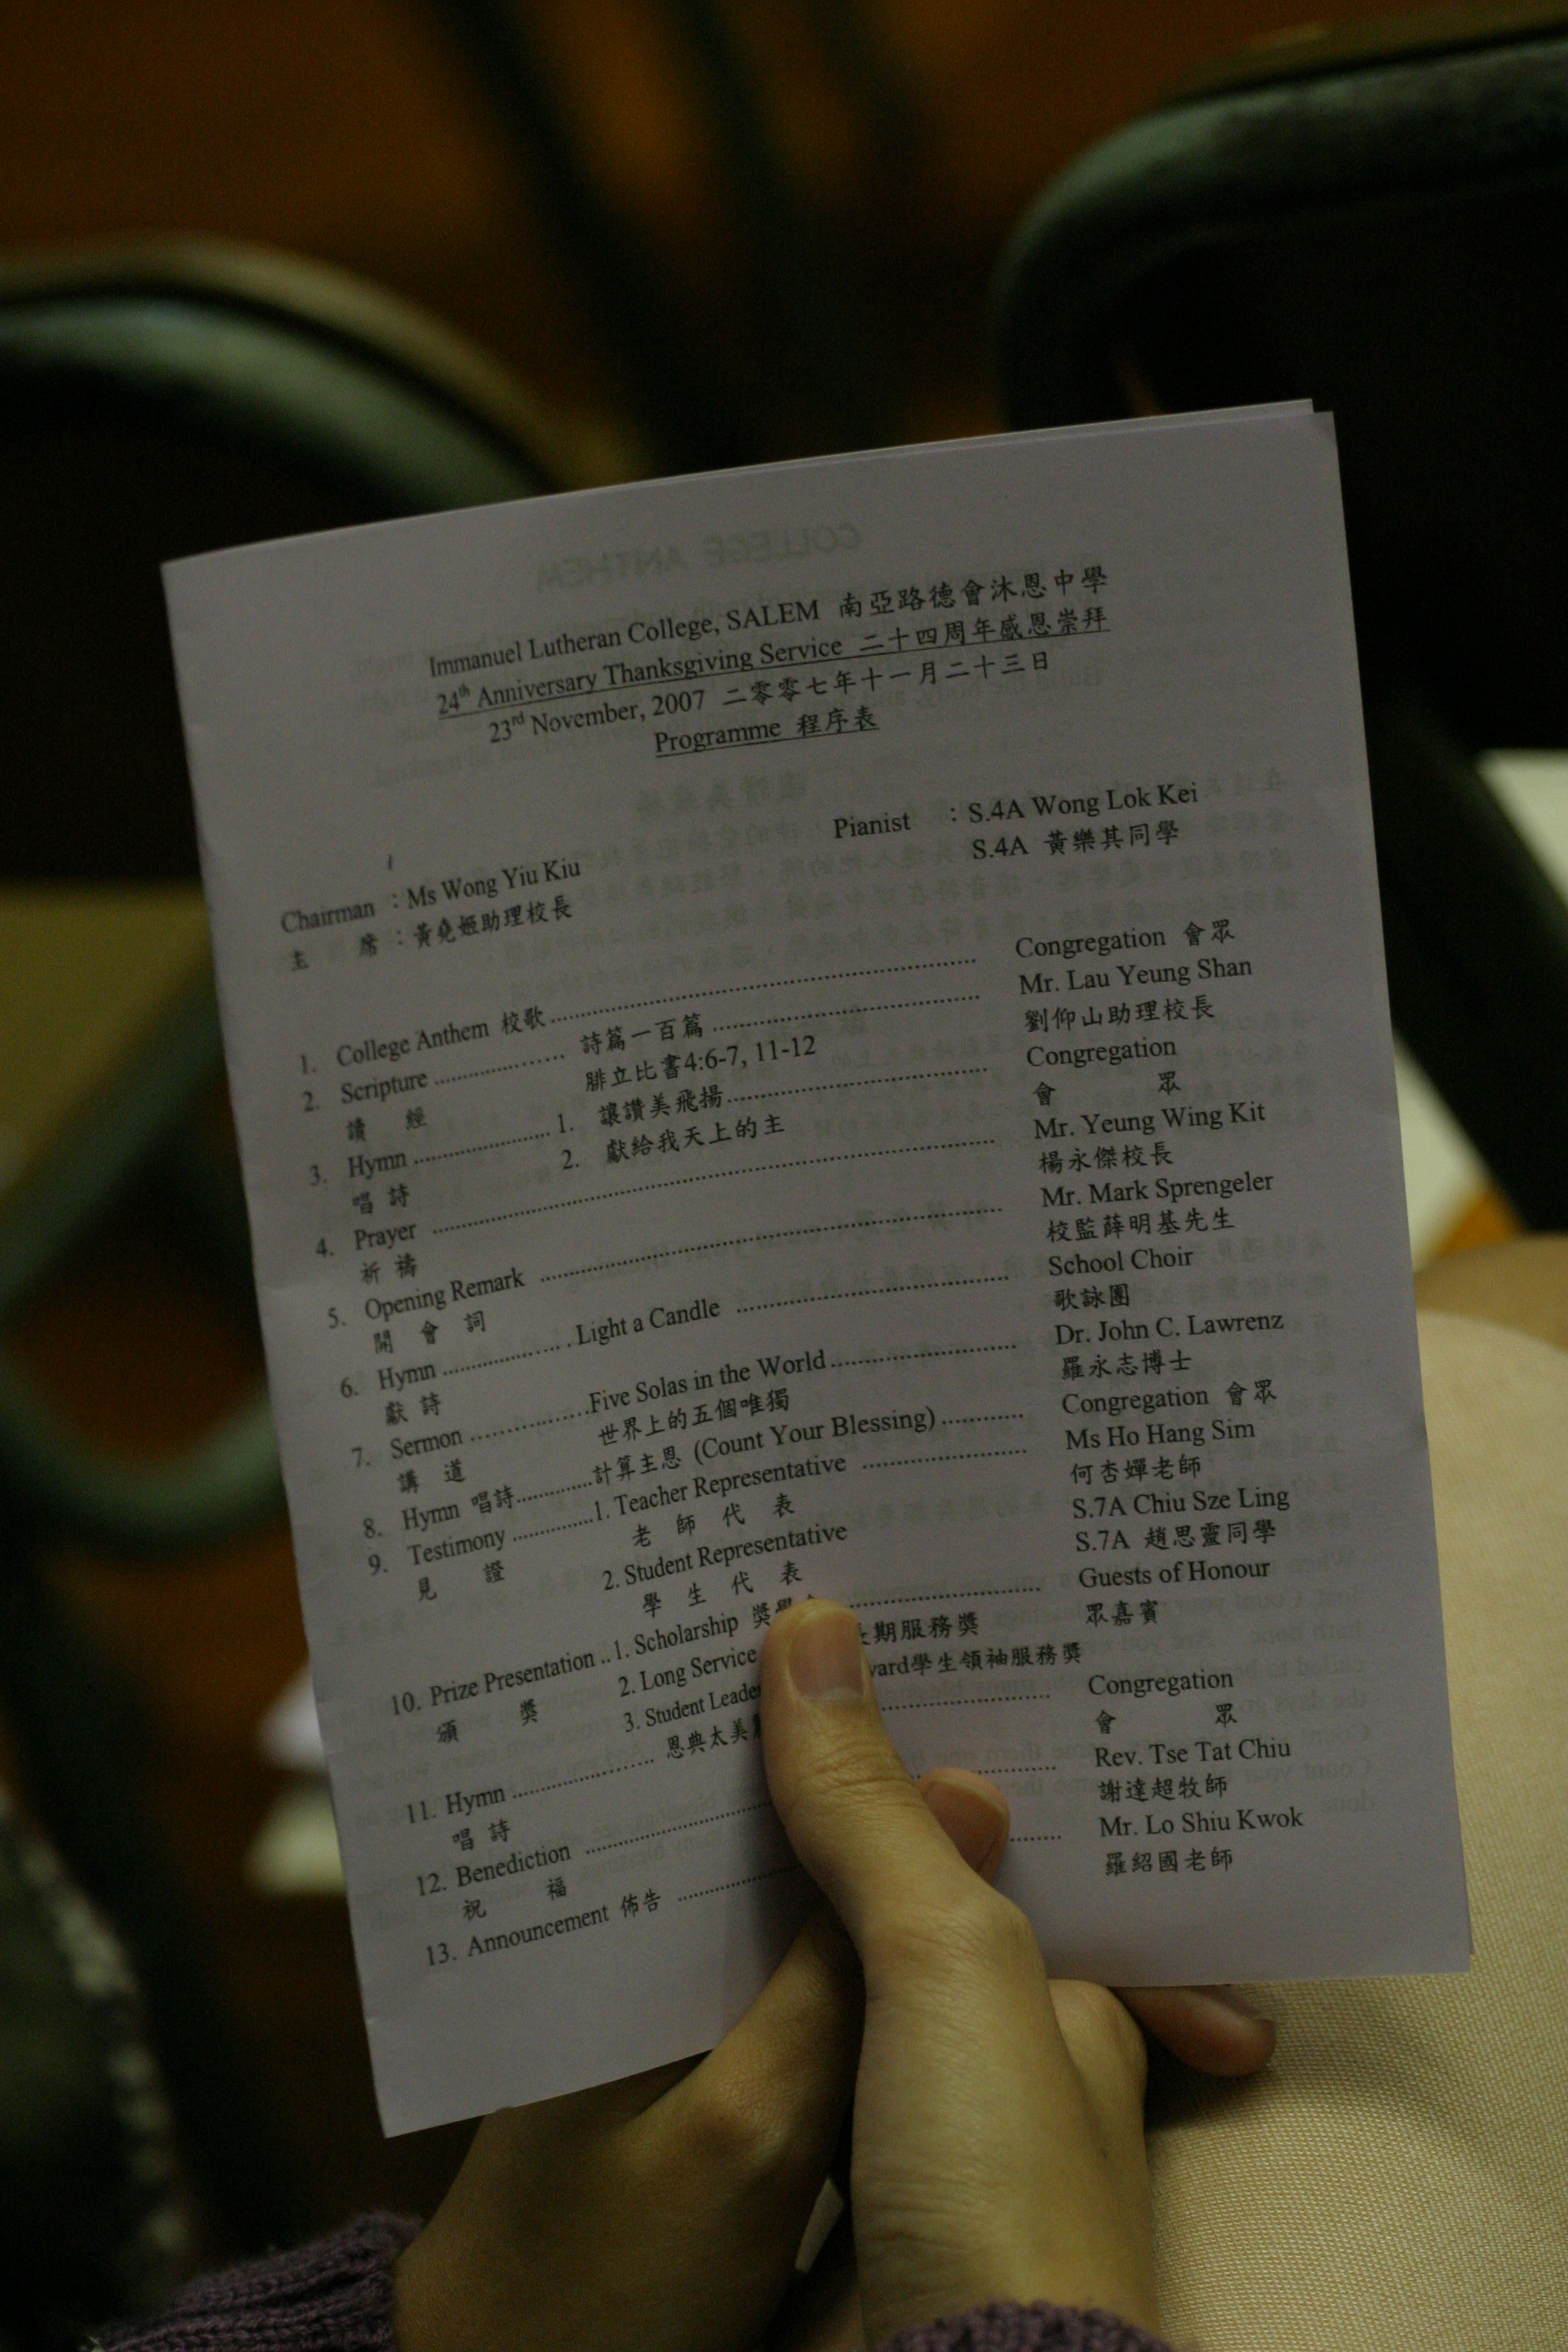 Immanuel Lutheran College, SALEM 南亞路德會沐恩中學
24th Anniversary Thanksgiving Service 二十四周年感恩崇拜
23rd November, 2007 二零零七年十一月二十三日
Programme 程序表
Pianist : S.4A Wong Lok Kei
S.4A 黃樂其同學
Chairman : Ms Wong Yiu Kiu
主 席 : 黃堯姬助理校長
1. College Anthem 校歌 ........ Congregation 會眾
2. Scripture ........ 詩篇一百篇 ........ Mr. Lau Yeung Shan
讀 經 腓立比書4:6-7, 11-12 劉仰山助理校長
3. Hymn ........ 1. 讓讚美飛揚 ........ Congregation
唱 詩 2. 獻給我天上的主 會 眾
4. Prayer ........ Mr. Yeung Wing Kit
祈 禱 楊永傑校長
5. Opening Remark ........ Mr. Mark Sprengeler
開 會 詞 校監薛明基先生
6. Hymn ........ Light a Candle ........ School Choir
獻 詩 歌詠團
7. Sermon ........ Five Solas in the World ........ Dr. John C. Lawrenz
講 道 世界上的五個唯獨 羅永志博士
8. Hymn 唱詩 ........ 計算主恩 (Count Your Blessing) ........ Congregation 會眾
9. Testimony ........ 1. Teacher Representative ........ Ms Ho Hang Sim
見 證 老 師 代 表 何杏嬋老師
2. Student Representative S.7A Chiu Sze Ling
學 生 代 表 S.7A 趙思靈同學
10. Prize Presentation .. 1. Scholarship 獎學 ........ Guests of Honour
頒 獎 2. Long Service 長期服務獎 眾嘉賓
3. Student Leade ward學生領袖服務獎
11. Hymn ........ 恩典太美 ........ Congregation
唱 詩 會 眾
12. Benediction ........ Rev. Tse Tat Chiu
祝 福 謝達超牧師
13. Announcement 佈告 ........ Mr. Lo Shiu Kwok
羅紹國老師